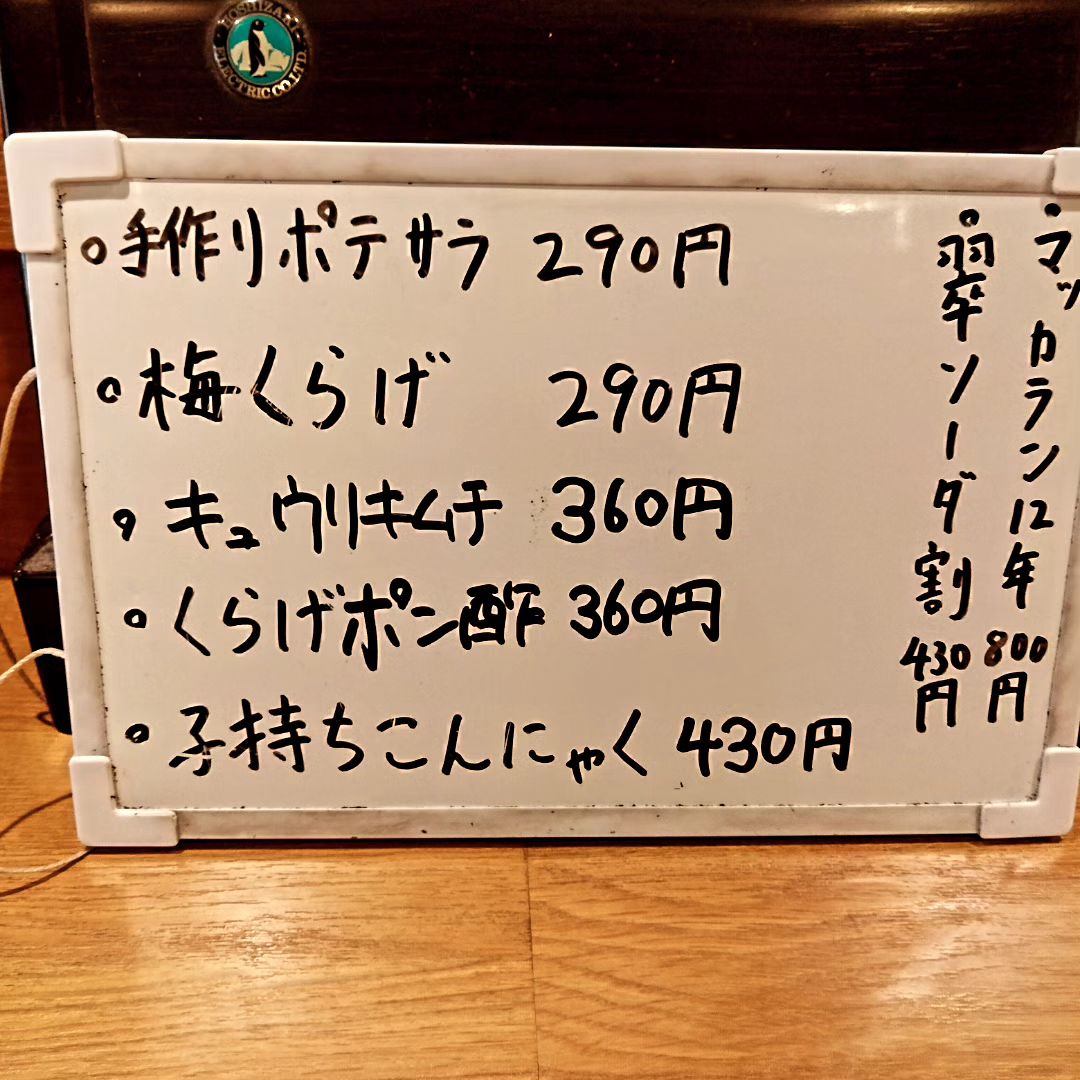 HOSHIZAKI ELECTRIC CO.,LTD.
。手作りポテサラ 290円
。梅くらげ 290円
。キュウリキムチ 360円
。くらげポン酢 360円
。子持ちこんにゃく 430円
。マッカラン12年 800円
。翠ソーダ割 430円